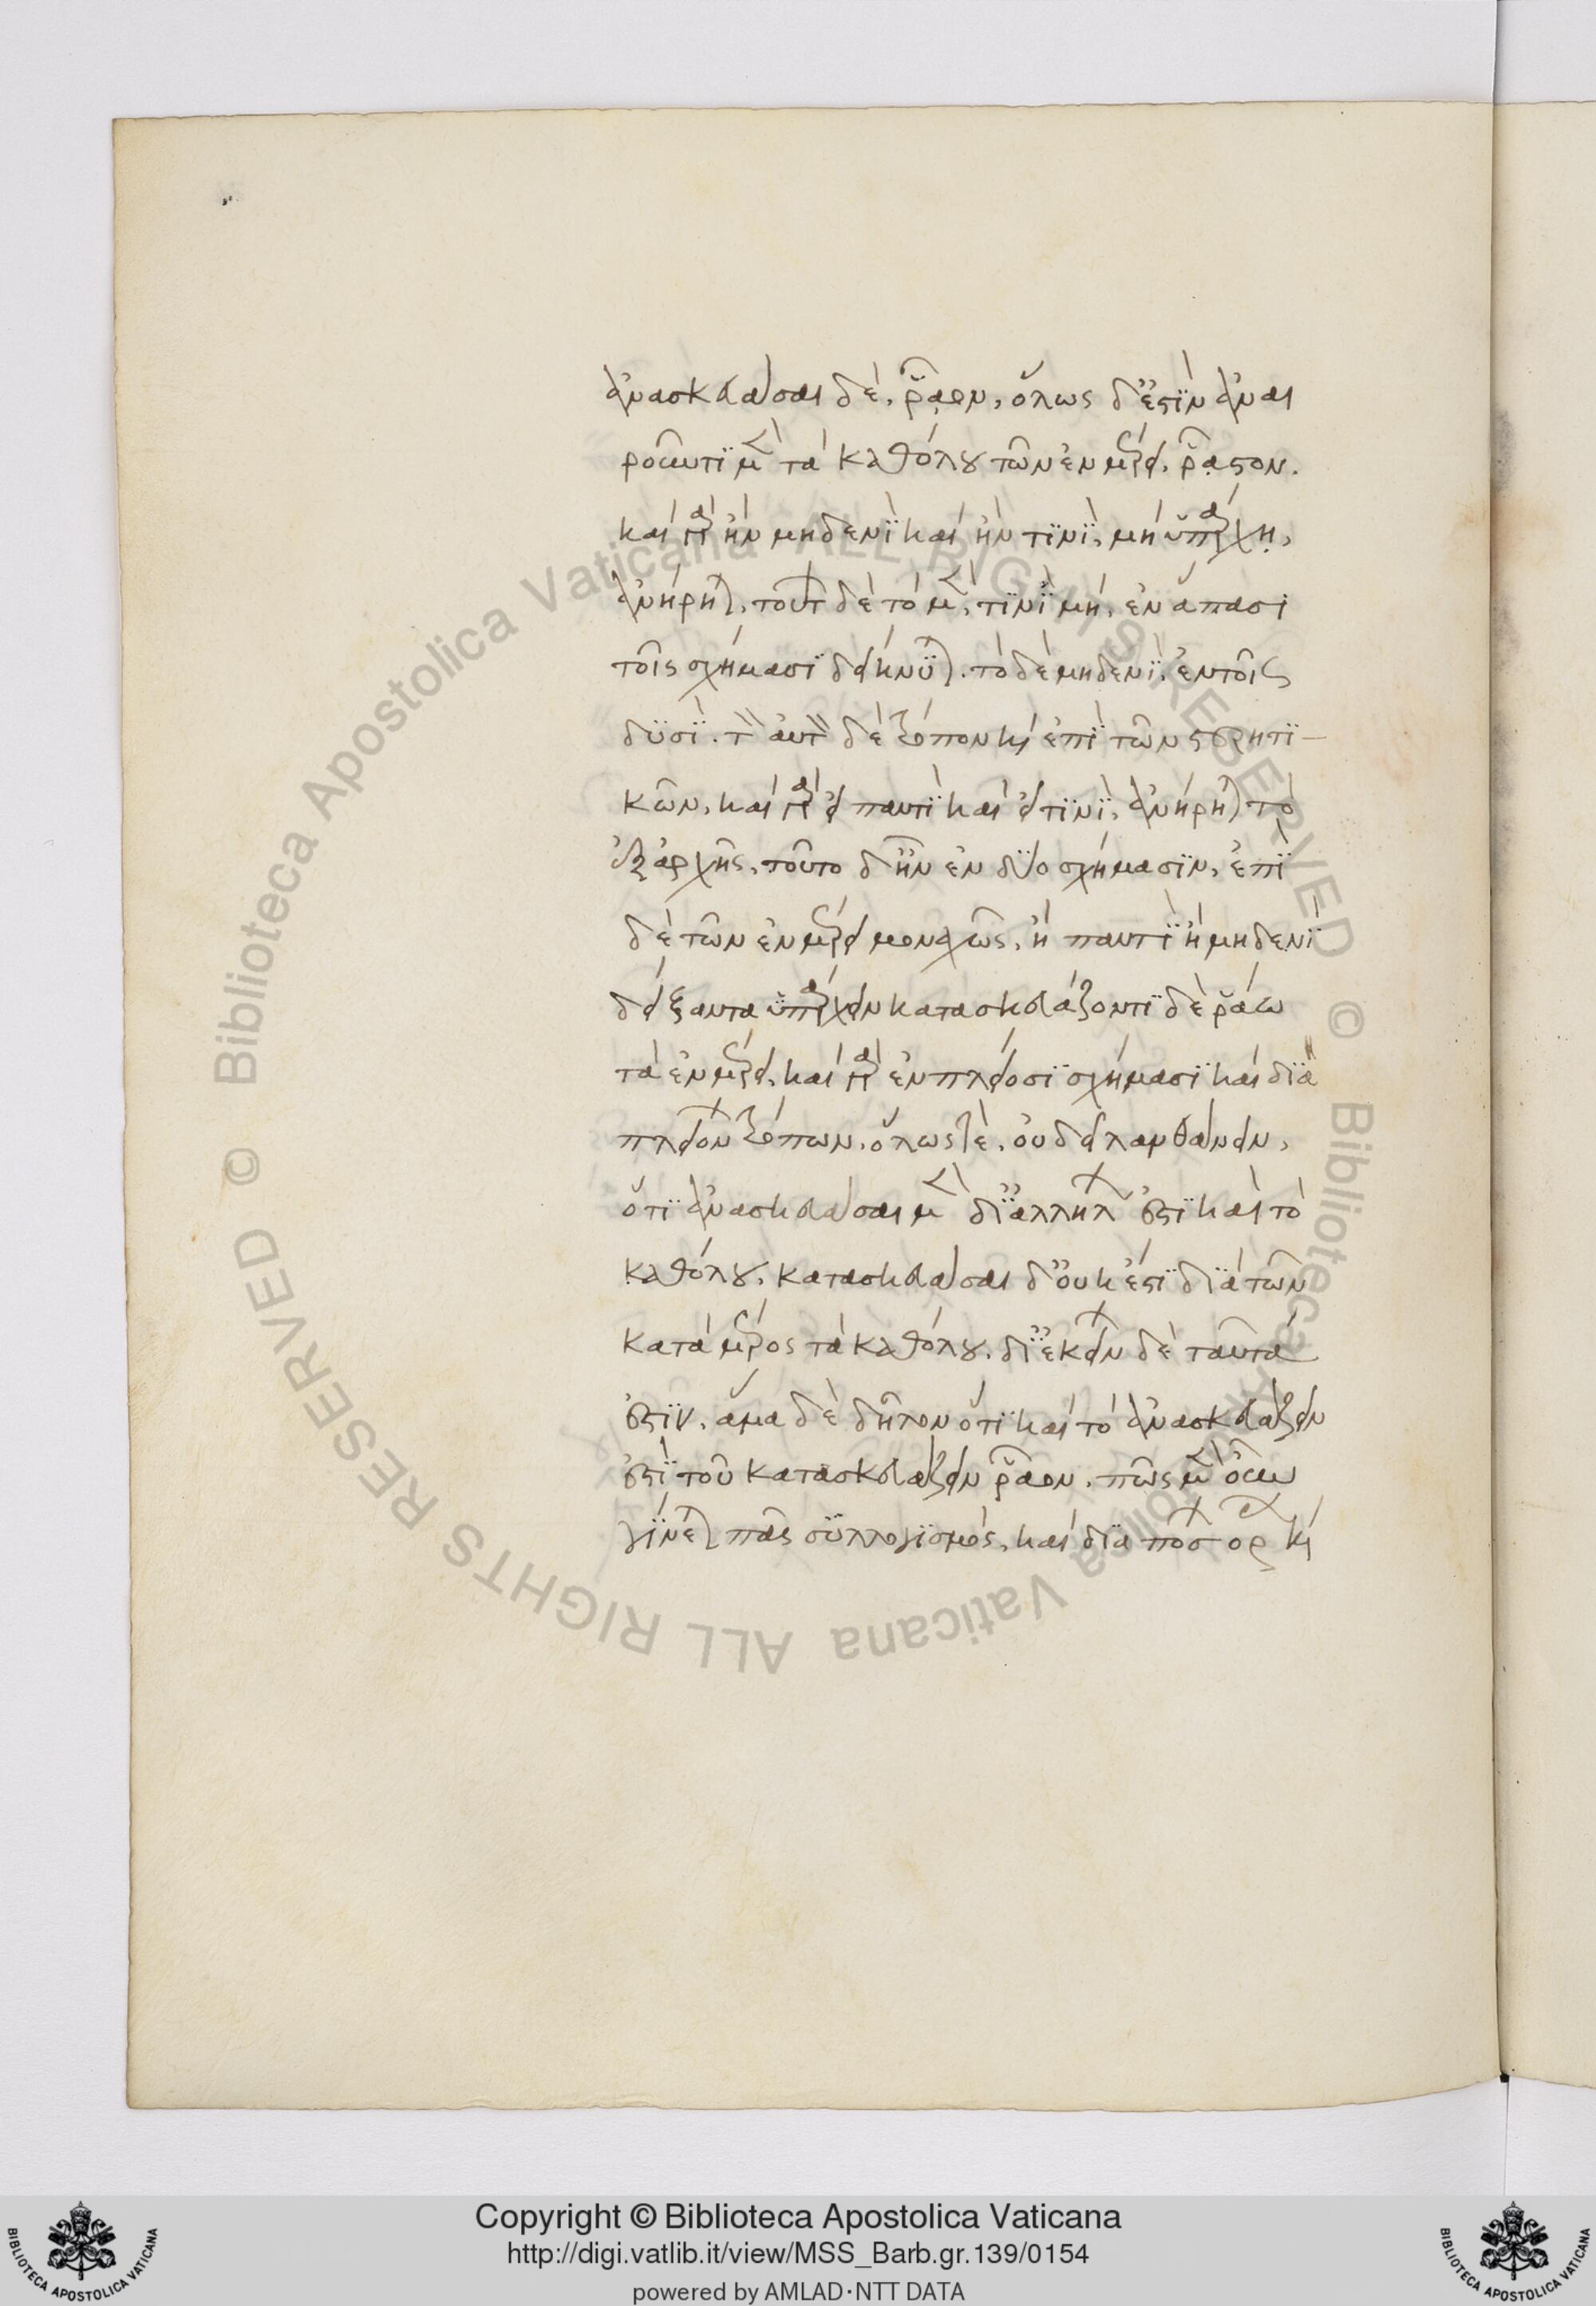 ἀνασκευάσαι δὲ, ῥᾷον, ὅλως δ' ἐστὶν ἀναι
ροῦντι μὲν τὰ καθόλου τῶν ἐν μέρει. ῥᾷστον.
καὶ γὰρ ἢν μηδενὶ καὶ ἢν τινὶ, μὴ ὑπάρχῃ,
ἀνήρηται, τούτων δὲ τὸ μὲν, τινὶ μὴ, ἐν ἅπασι
τοῖς σχήμασι δείκνυται. τὸ δὲ μηδενὶ, ἐν τοῖς
δυσὶ. τὸν αὐτὸν δὲ τρόπον καὶ ἐπὶ τῶν στερητι-
κῶν, καὶ γὰρ εἰ παντὶ καὶ εἰ τινὶ, ἀνήρηται τὸ
ἐξ ἀρχῆς, τοῦτο δ' ἦν ἐν δύο σχήμασιν, ἐπὶ
δὲ τῶν ἐν μέρει μοναχῶς, ἢ παντὶ ἢ μηδενὶ
δείξαντα ὑπάρχειν κατασκευάζοντι δὲ ῥάω
τὰ ἐν μέρει, καὶ γὰρ ἐν πλείοσι σχήμασι καὶ διὰ
πλειόνων τρόπων, ὅλως τὲ, οὐ δεῖ λανθάνειν,
ὅτι ἀνασκευάσαι μὲν δι' ἀλλήλων ἐστὶ καὶ τὸ
καθόλου, κατασκευάσαι δ' οὐκ ἔστι διὰ τῶν
κατὰ μέρος τὰ καθόλου, δι' ἐκείνων δὲ ταῦτά
ἐστιν, ἅμα δὲ δῆλον ὅτι καὶ τὸ ἀνασκευάζειν
ἐστὶ τοῦ κατασκευάζειν ῥᾷον. πῶς μὲν οὖν
γίνεται πᾶς συλλογισμός, καὶ διὰ πόσων ὅρων καὶ
Copyright © Biblioteca Apostolica Vaticana
http://digi.vatlib.it/view/MSS_Barb.gr.139/0154
powered by AMLAD·NTT DATA